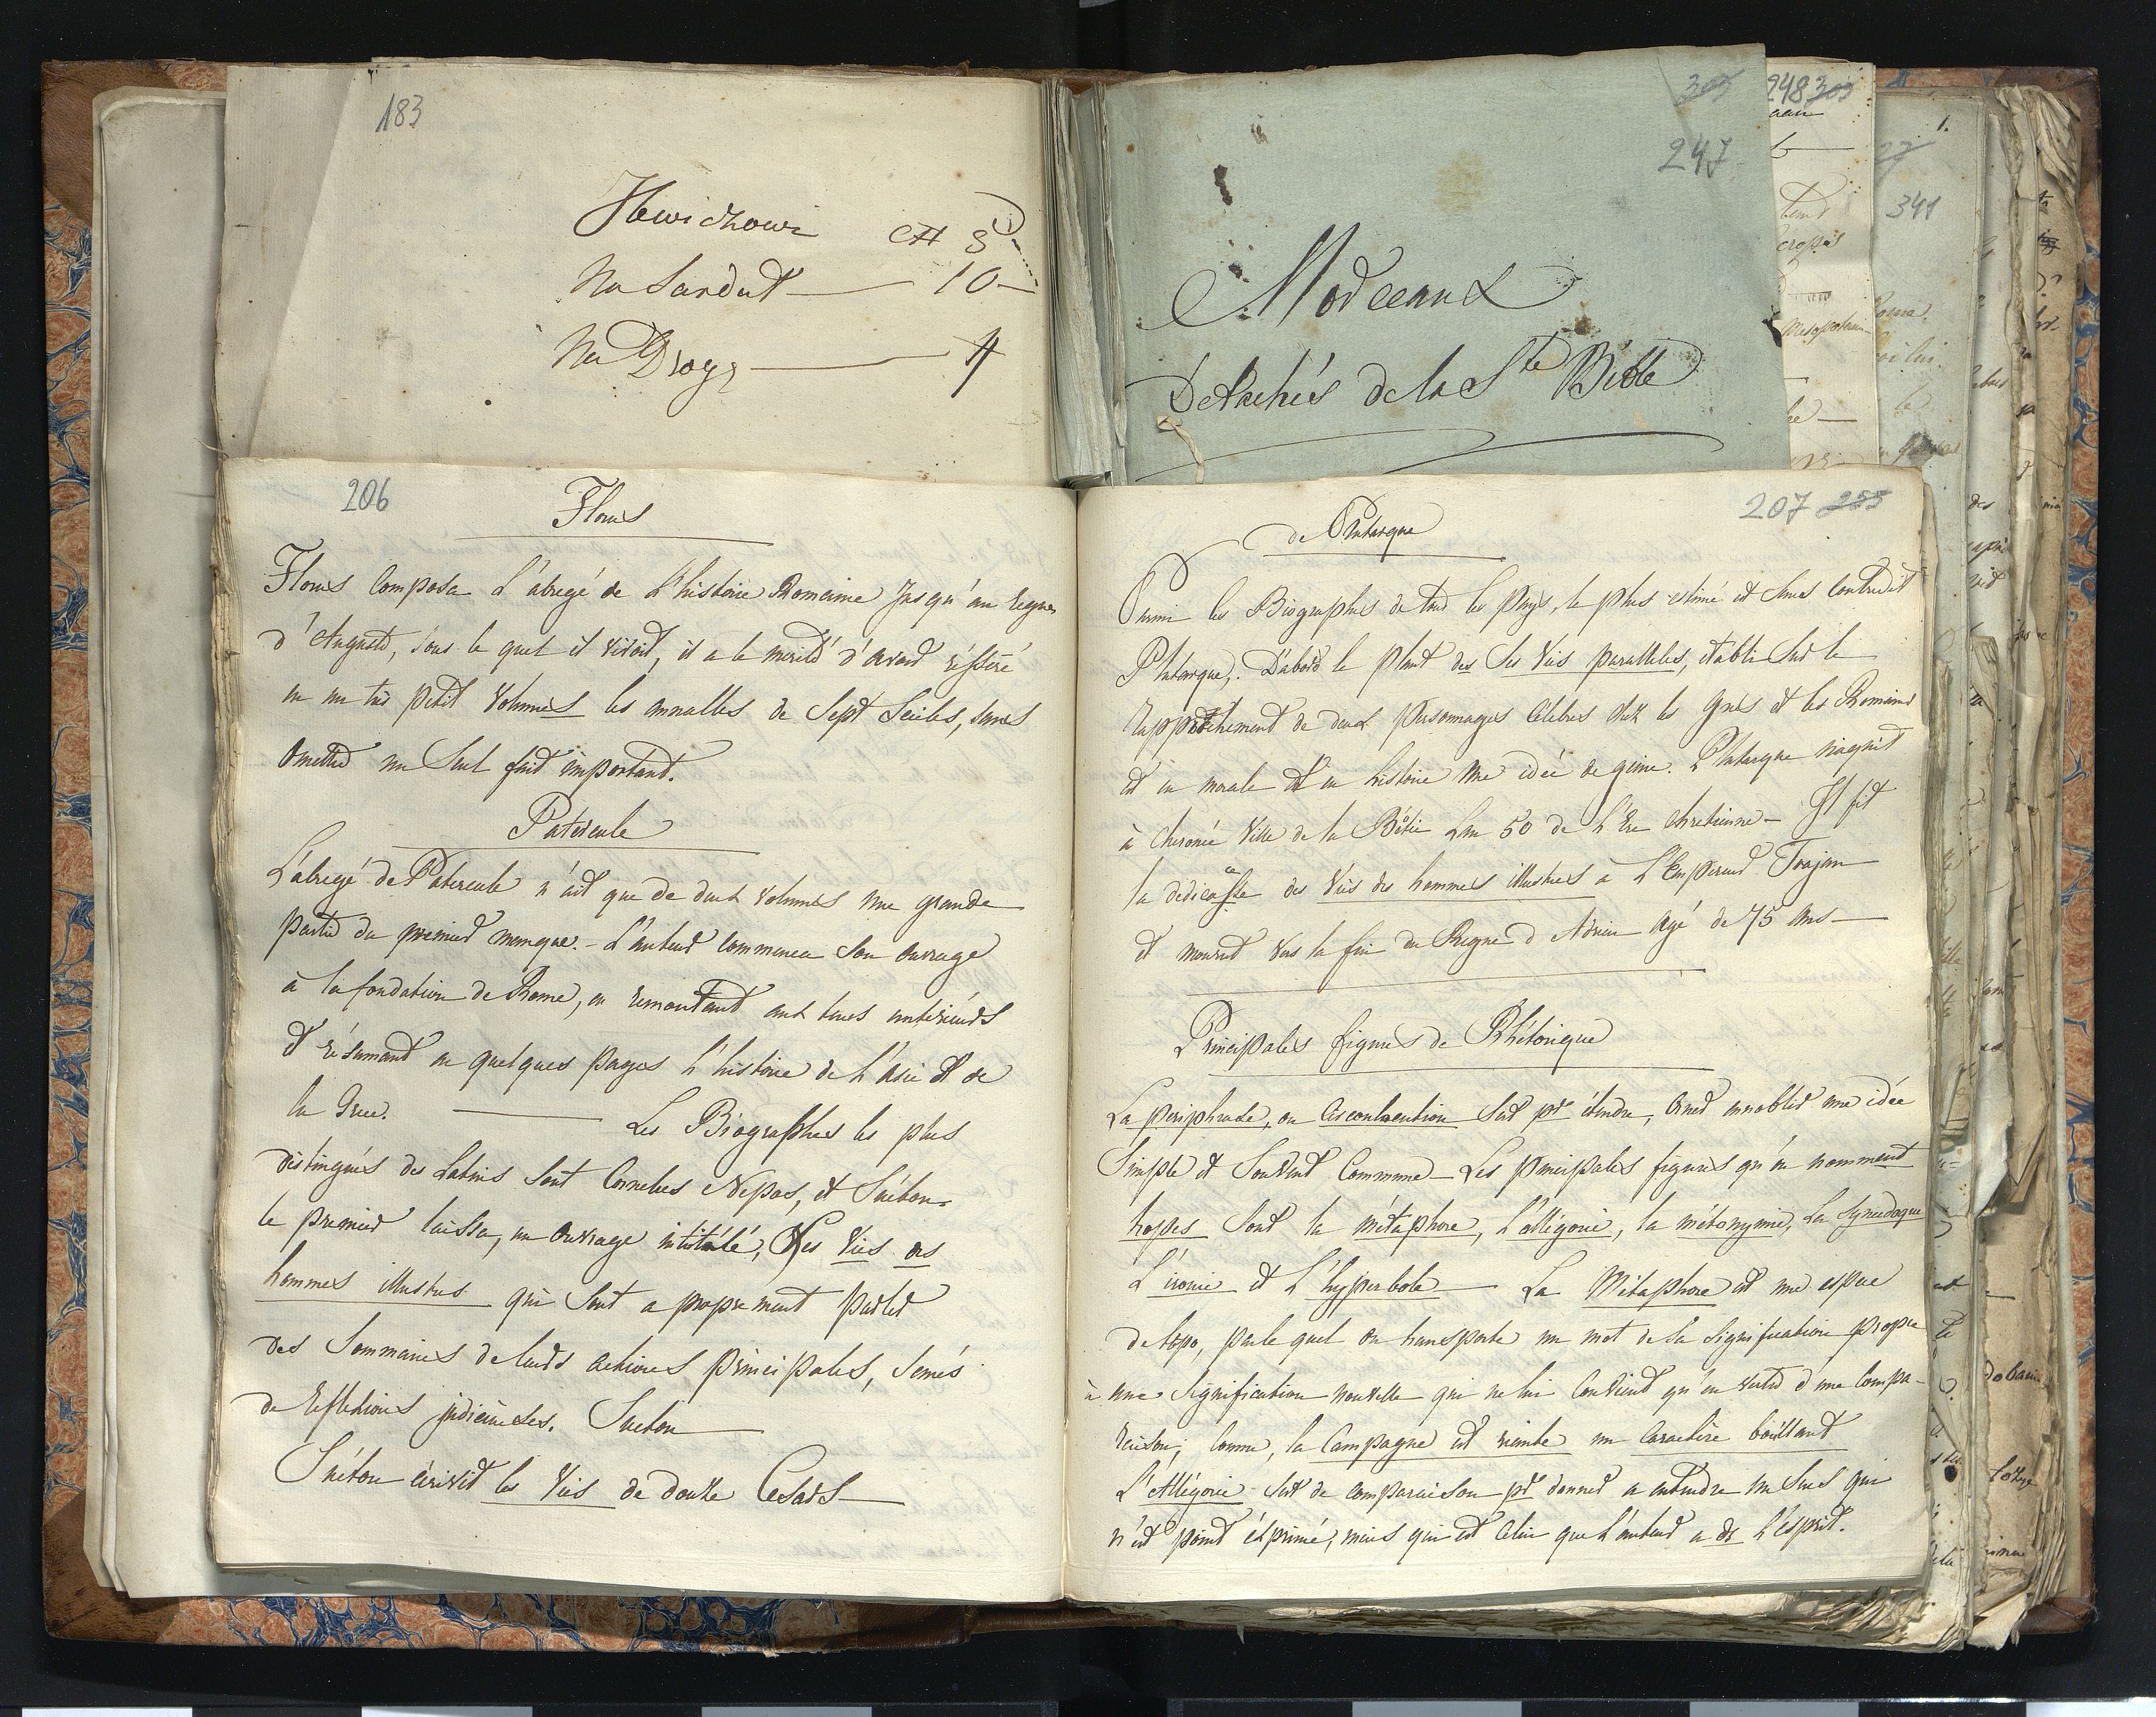 183
Na Sardut — 10 —
Na Drogę — 4
305
247
Morceaux
Détachés de la Ste Bible
248 305
341
206
Florus
Florus composa l'abregé de l'histoire Romaine jusqu'au regne
d'Auguste, sous le quel il vivoit, il a le merite d'avoir résseré
en un très petit Volumes les annalles de Sept Siecles, sans
omettre un Seul fait important.
Patercule
L'abregé de Patercule n'ait que de deux volumes une grande
partie du premier manque. – L'auteur commence Son ouvrage
à la fondation de Rome, en remontant aux tems antérieurs
et résumant en quelques pages l'histoire de l'Asie et de
la Grece. — Les Biographes les plus
distingués des Latins sont Cornelius Nepos, et Suéton.
le premier laissa, un ouvrage intitulé, Les Vies des
hommes illustres qui sont a proprement parler
des Sommaires de leurs actions principales, semés
de reflexions judicieuses. Sueton —
Suéton écrivit les Vies de douze Cesars —
207 255
de Plutarque
Parmi les Biographes de tous les Pays, le plus estimé est sans contredit
Plutarque,. D'abord le plant des Ses Vies paralleles, établi sur le
rapprochement de deux personnages célebres chez les Grecs et les Romains
est en morale et en histoire une idée de génie. Plutarque naquit
à Cheronée Ville de la Béotie l'an 50 de l'Ere chretienne – Il fit
la dedicasse des Vies des hommes illustres a l'Empereur Trajan
et mourut vers la fin du Regne d'Adrien agé de 75 ans —
Principales figures de Rhétorique
La periphrase, ou circonlocution sert pr étendre, orner annoblir une idée
Simple et Souvent Commune – Les principales figures qu'on nomment
tropes sont la métaphore, l'allégorie, la métonymie, La Synecdoque
l'ironie et l'hyperbole — La Métaphore est une espece
de tropo, par le quel on transporte un mot de sa signification propre
à une signification nouvelle qui ne lui convient qu'en vertu d'une compa-
raison; comme, la Campagne est riante un Caractère boüillant
L'Allégorie sert de comparaison pr donner a entendre un sens qui
n'est point éxprimé, mais qui est celui que l'auteur a ds l'esprit.